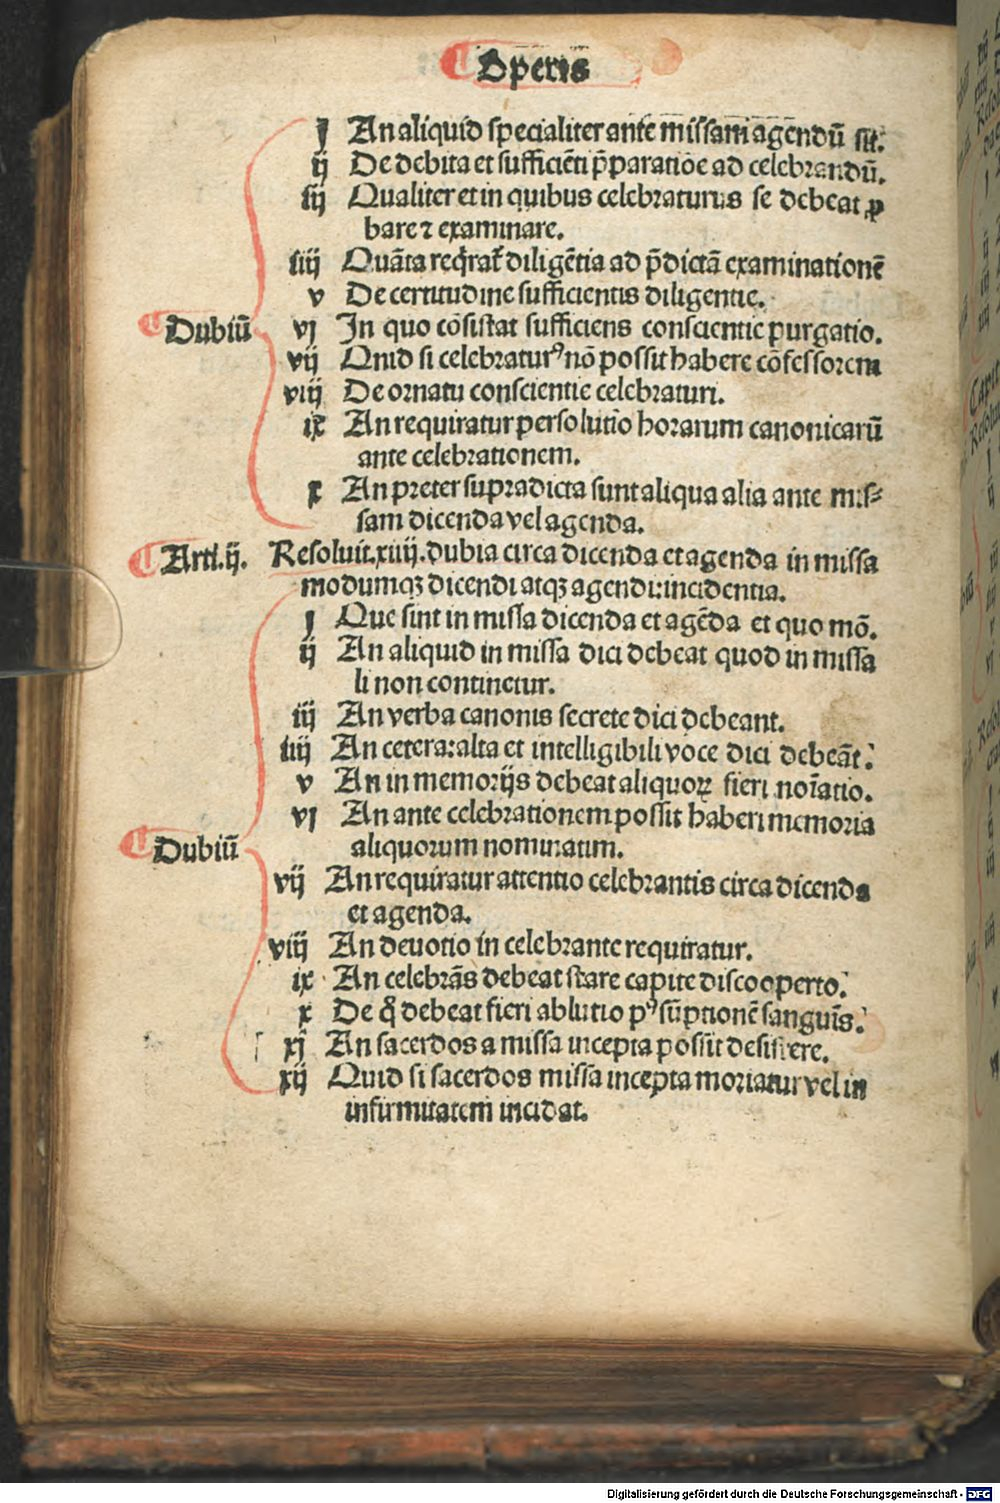 Operis
j An aliquid specialiter ante missam agendū sit.
ij De debita et sufficiēti p̄paratiōe ad celebrandū.
iij Qualiter et in quibus celebraturus se debeat ꝓ
bare ⁊ examinare.
iiij Quāta req̄rat᷑ diligētia ad p̄dictā examinationē
v De certitudine sufficientis diligentie.
Dubiū vj In quo cōsistat sufficiens conscientie purgatio.
vij Quid si celebraturꝰ nō possit habere cōfessorem
viij De ornatu conscientie celebraturi.
ix An requiratur persolutio horarum canonicarū
ante celebrationem.
x An preter supradicta sunt aliqua alia ante mis⸗
sam dicenda vel agenda.
Arti.ij. Resoluit.xiiij.dubia circa dicenda et agenda in missa
modumqꝫ dicendi atqꝫ agendi:incidentia.
j Que sint in missa dicenda et agēda et quo mō.
ij An aliquid in missa dici debeat quod in missa
li non continetur.
iij An verba canonis secrete dici debeant.
iiij An cetera:alta et intelligibili voce dici debeāt.
v An in memorijs debeat aliquoꝝ fieri noīatio.
vj An ante celebrationem possit haberi memoria
aliquorum nominatim.
Dubiū
vij An requiratur attentio celebrantis circa dicenda
et agenda.
viij An deuotio in celebrante requiratur.
ix An celebrās debeat stare capite discooperto.
x De q̄ debeat fieri ablutio pꝰ sūptionē sanguīs.
xj An sacerdos a missa incepta possit desistere.
xij Quid si sacerdos missa incepta moriatur vel in
infirmitatem incidat.
Digitalisierung gefördert durch die Deutsche Forschungsgemeinschaft - DFG